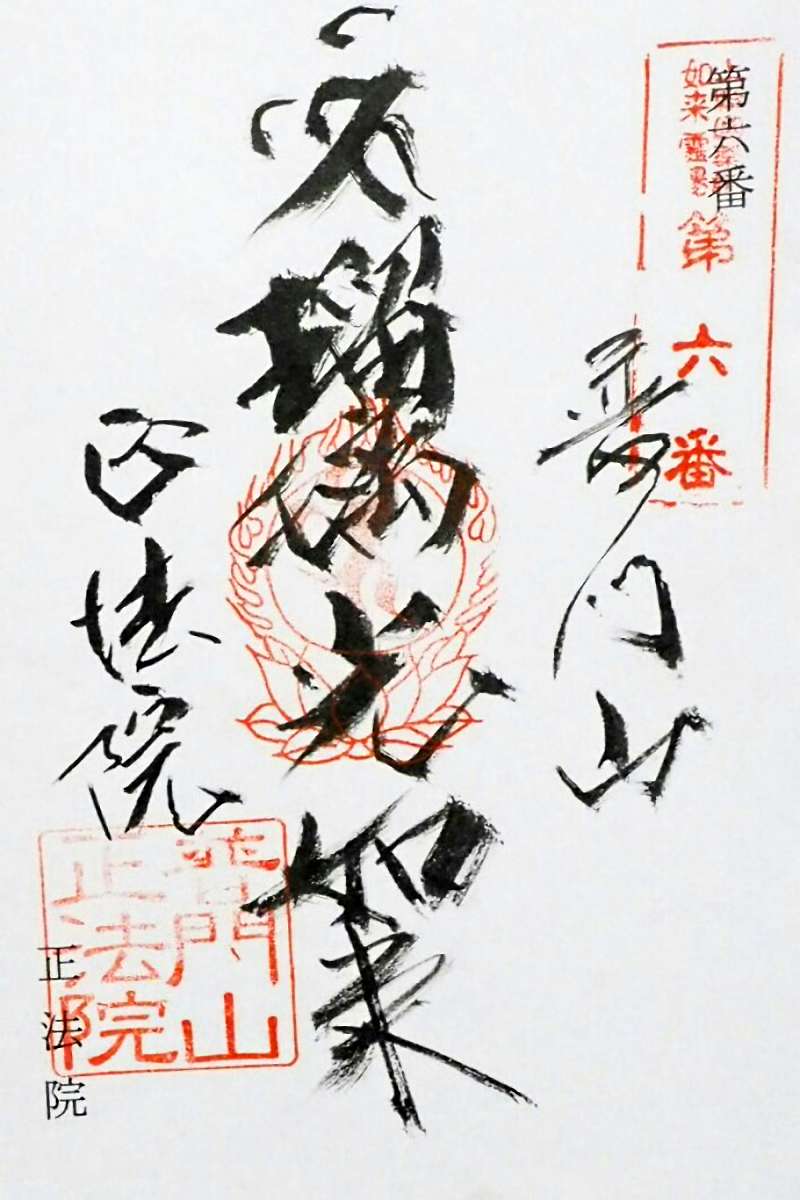 第六番
如来霊場 第六番
普門山
瑠璃光如来
正法院
普門山
正法院
正法院